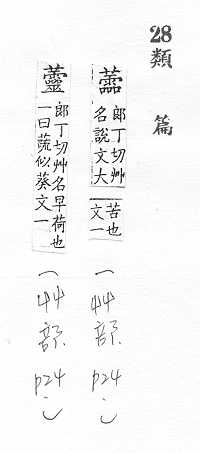 28 類 篇
蘦
郎丁切艸
名說文大
苦也
文一
(艸部 p24.)
郎丁切艸名早荷也
一曰蔬似葵文一
(艸部 p24.)